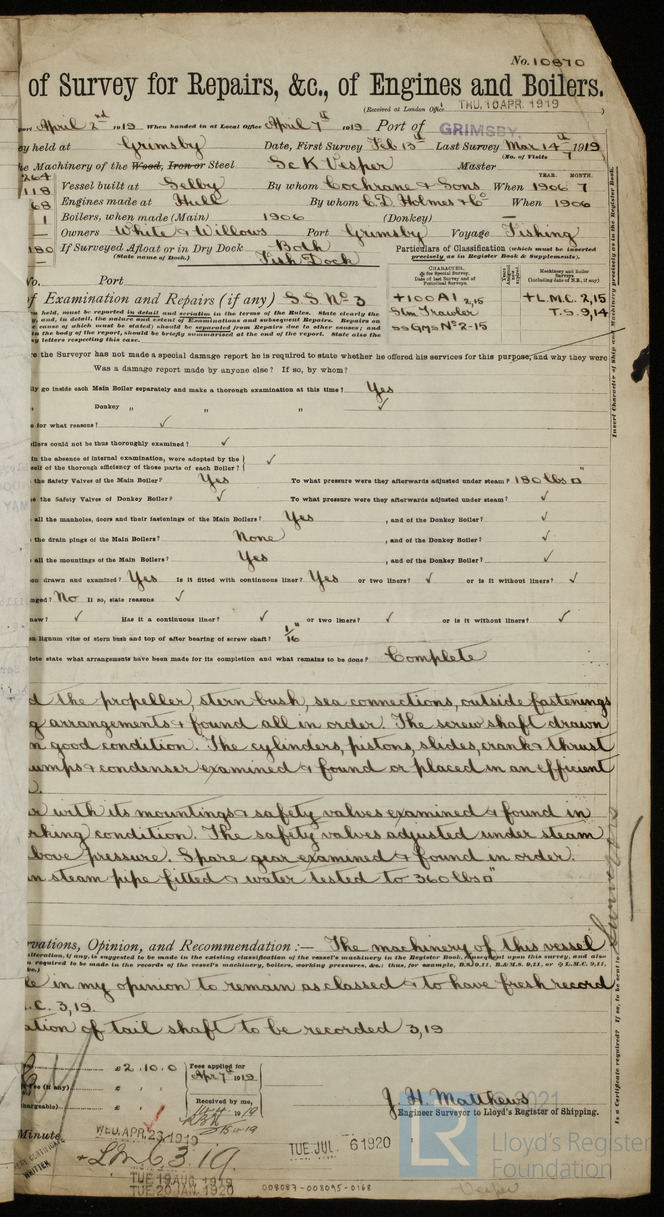 No. 10870
of Survey for Repairs, &c., of Engines and Boilers.
(Received at London Office THU. 10 APR. 1919 )
April 2nd 1919 When handed in at Local Office April 7th 1919 Port of GRIMSBY.
held at Grimsby Date, First Survey Feb 13th Last Survey Mar 14th 1919
(No. of Visits 7
the Machinery of the Wood, Iron or Steel Sc K Vesper Master
YEAR. MONTH.
264
118 Vessel built at Selby By whom Cochrane & Sons When 1906 7
68 Engines made at Hull By whom C.D. Holmes & Co When 1906
1 Boilers, when made (Main) 1906 (Donkey) —
— Owners White & Willows Port Grimsby Voyage Fishing
180 If Surveyed Afloat or in Dry Dock Both
(State name of Dock.) Fish Dock
Particulars of Classification (which must be inserted precisely as in Register Book & Supplements).
No. Port
of Examination and Repairs (if any) S.S. No 3
CHARACTER.
for Special Survey.
Date of last Survey and of Periodical Surveys.
Machinery and Boiler Surveys
(including date of N.B., if any)
+100A1 2,15
Stm Trawler
ss Gms No 2-15
+L.M.C. 2,15
T.S. 9,14
Insert Character of Ship and Machinery precisely as in the Register Book.
held, must be reported in detail and seriatim in the terms of the Rules. State clearly the
and, in detail, the nature and extent of Examinations and subsequent Repairs. Repairs on
cause of which must be stated) should be separated from Repairs due to other causes; and
in the body of the report, should be briefly summarised at the end of the report. State also the
letters respecting this case.
the Surveyor has not made a special damage report he is required to state whether he offered his services for this purpose, and why they were
Was a damage report made by anyone else? If so, by whom?
go inside each Main Boiler separately and make a thorough examination at this time? Yes
„ Donkey „ „ „ ✓
for what reasons? ✓
could not be thus thoroughly examined? ✓
in the absence of internal examination, were adopted by the
self of the thorough efficiency of those parts of each Boiler? ✓
the Safety Valves of the Main Boiler? Yes To what pressure were they afterwards adjusted under steam? 180 lbs □"
the Safety Valves of Donkey Boiler? ✓ To what pressure were they afterwards adjusted under steam? ✓
all the manholes, doors and their fastenings of the Main Boilers? Yes , and of the Donkey Boiler? ✓
the drain plugs of the Main Boilers? None , and of the Donkey Boiler? ✓
all the mountings of the Main Boilers? Yes , and of the Donkey Boiler? ✓
drawn and examined? Yes Is it fitted with continuous liner? Yes or two liners? ✓ or is it without liners? ✓
No If so, state reasons ✓
new? ✓ Has it a continuous liner? ✓ or two liners? ✓ or is it without liners? ✓
lignum vitæ of stern bush and top of after bearing of screw shaft? 1/16"
state what arrangements have been made for its completion and what remains to be done? Complete
the propeller, stern bush, sea connections, outside fastenings
arrangements & found all in order. The screw shaft drawn
good condition. The cylinders, pistons, slides, crank & thrust
umps & condenser examined & found or placed in an efficient
with its mountings & safety valves examined & found in
rking condition. The safety valves adjusted under steam
bove pressure. Spare gear examined & found in order.
steam pipe fitted & water tested to 360 lbs □"
rvations, Opinion, and Recommendation :— The machinery of this vessel
alteration, if any, is suggested to be made in the existing classification of the vessel's machinery in the Register Book, subsequent upon this survey, and also
required to be made in the records of the vessel's machinery, boilers, working pressures, &c.: thus, for example, B.S. 9,11, B.&M.S. 9,11, or L.M.C. 9,11,
le in my opinion to remain as classed & to have fresh record
.C. 3,19.
ation of tail shaft to be recorded 3,19
Is a Certificate required? If so, to be sent to
£ 2 . 10 . 0
(if any) £
chargeable) £
Fees applied for
Apr 7th 1919
Received by me,
19
J. H. Matthews
Engineer Surveyor to Lloyd's Register of Shipping.
Minute
WED. APR. 23 1919
+LMC 3.19.
TUE. JUL. 6 1920
TUE 19 AUG. 1919
TUE 20 JAN. 1920
WRITTEN
008087-008095-0168
Vesper
2021
LR
Lloyd's Register
Foundation